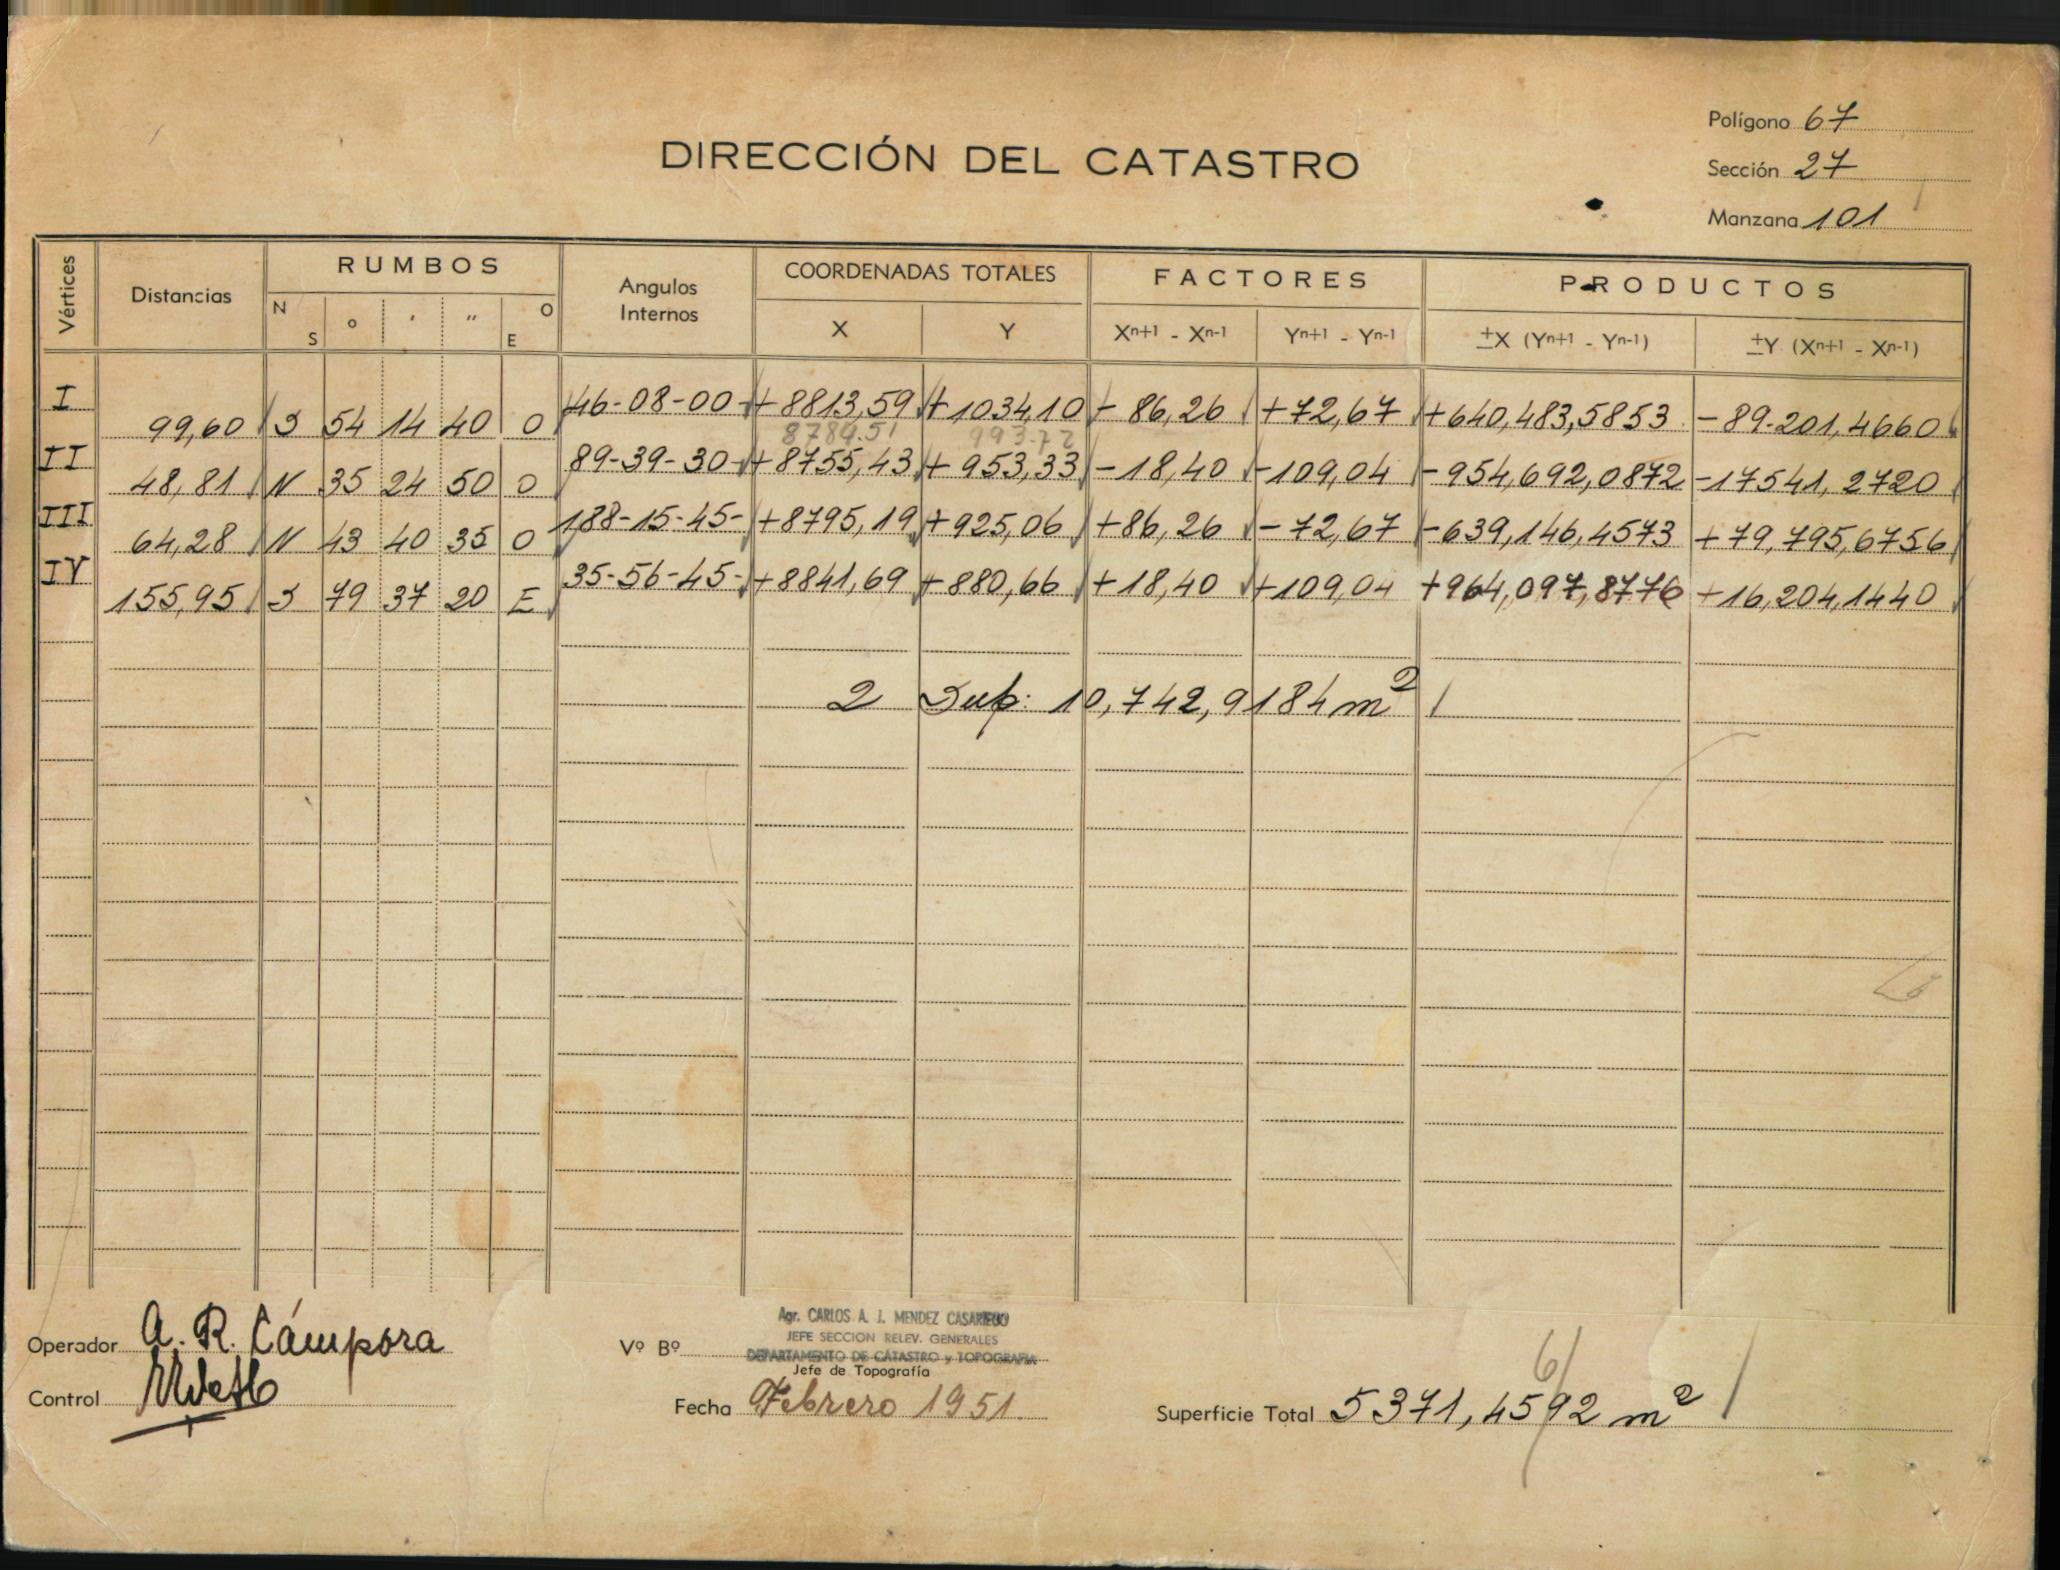 Polígono 67
DIRECCIÓN DEL CATASTRO
Sección 27
Manzana 101
Vértices Distancias RUMBOS Angulos Internos COORDENADAS TOTALES FACTORES PRODUCTOS
N S ° ' " O E X Y Xn+1 - Xn-1 Yn+1 - Yn-1 ±X (Yn+1 - Yn-1) ±Y (Xn+1 - Xn-1)
I 99,60 S 54 14 40 O 46-08-00- +8813,59 +1034,10 - 86,26 +72,67 +640,483,5853 -89.201,4660
8789.51 993.72
II 48,81 N 35 24 50 O 89-39-30- +8755,43 + 953,33 -18,40 -109,04 -954,692,0872 -17541,2720
III 64,28 N 43 40 35 O 188-15-45- +8795,19 +925,06 +86,26 -72,67 -639,146,4573 +79,795,6756
IV 155,95 S 79 37 20 E 35-56-45- +8841,69 +880,66 +18,40 +109,04 +964,097,8776 +16,204,1440
2 Sup: 10,742,9184 m²
Operador A. R. Cámpora
Control
Vº Bº
Agr. CARLOS A. J. MENDEZ CASARIEGO
JEFE SECCION RELEV. GENERALES
DEPARTAMENTO DE CATASTRO y TOPOGRAFIA
Jefe de Topografía
Fecha Febrero 1951.
Superficie Total 5371,4592 m²
6